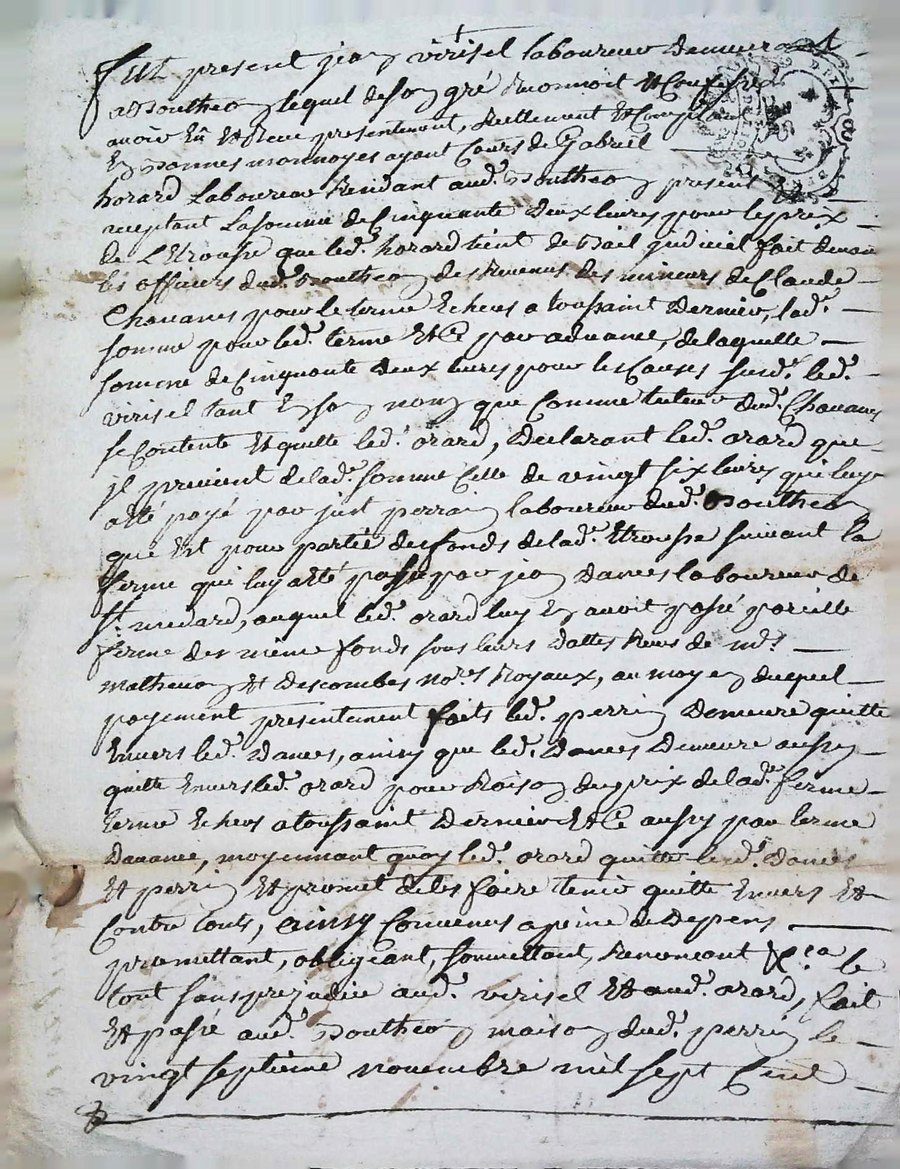 Fut present jean virisel laboureur demeurant
a Boutheon lequel de son gré reconnoit et confesse
avoir eû et receu presentement, reellement et comptant
en bonnes monnoyes ayant cours de Gabriel
horard laboureur residant aud. Boutheon present
acceptant la somme de Cinquante deux livres pour le prix
de l'Etrousse que led. horard tient de bail judiciel fait devant
les officiers dud. Boutheon des Revenus des mineurs de Claude
Chovanes pour le terme Echeus a toussaint dernier, lad.
somme pour led. terme Et Ce par advance, de laquelle
somme de Cinquante deux livres pour les Causes susd. led.
virisel tant En son nom que Comme tuteur dud. Chovanes
se Contente Et quitte led. orard, Declarant led. orard que
jl provient de lad. somme Celle de vingt six livres qui luy
a esté payé par just perrin laboureur dud. Boutheon
que Est pour partie des fonds de lad. Etrousse suivant la
ferme qui luy a esté passé par jean Dances laboureur de
St. medard, auquel led. orard luy En avoit passé pareille
ferme des même fonds sous leurs dattes Receus de mes
matheuon Et Descombes nores Royaux, au moyen duquel
payement presentement faits led. perrin Demeure quitte
Envers led. Dances, ainsy que led. Dances Demeure aussy
quitte Envers led. orard pour Raison du prix de lad. ferme
terme Echeus a toussaint Dernier Et Ce aussy par terme
davance, moyennant quoy led. orard quitte lesd. Dances
Et perrin Et promet de les faire tenir quitte Envers Et
Contre touts, ainsy Convenus a peine de Depens
promettant, obligeant, soumettant, Renoncant &ca le
tout sans prejudice aud. virisel Et aud. orard, fait
Et passé aud. Boutheon maison dud. perrin le
vingt septième novembre mil sept Cent